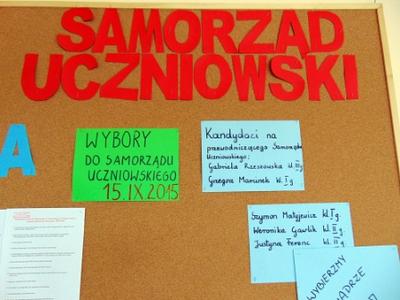 SAMORZĄD
UCZNIOWSKI
A
WYBORY
DO SAMORZĄDU
UCZNIOWSKIEGO
15.IX 2015
Kandydaci na
przewodniczącego Samorządu
Uczniowskiego:
Gabriela Rzeszowska kl. III g
Grzegorz Marciniek kl. I g
Szymon Matyjewicz kl. I g.
Weronika Gawlik kl. III g
Justyna Ferenc kl. II g
WYBIERZMY
MĄDRZE